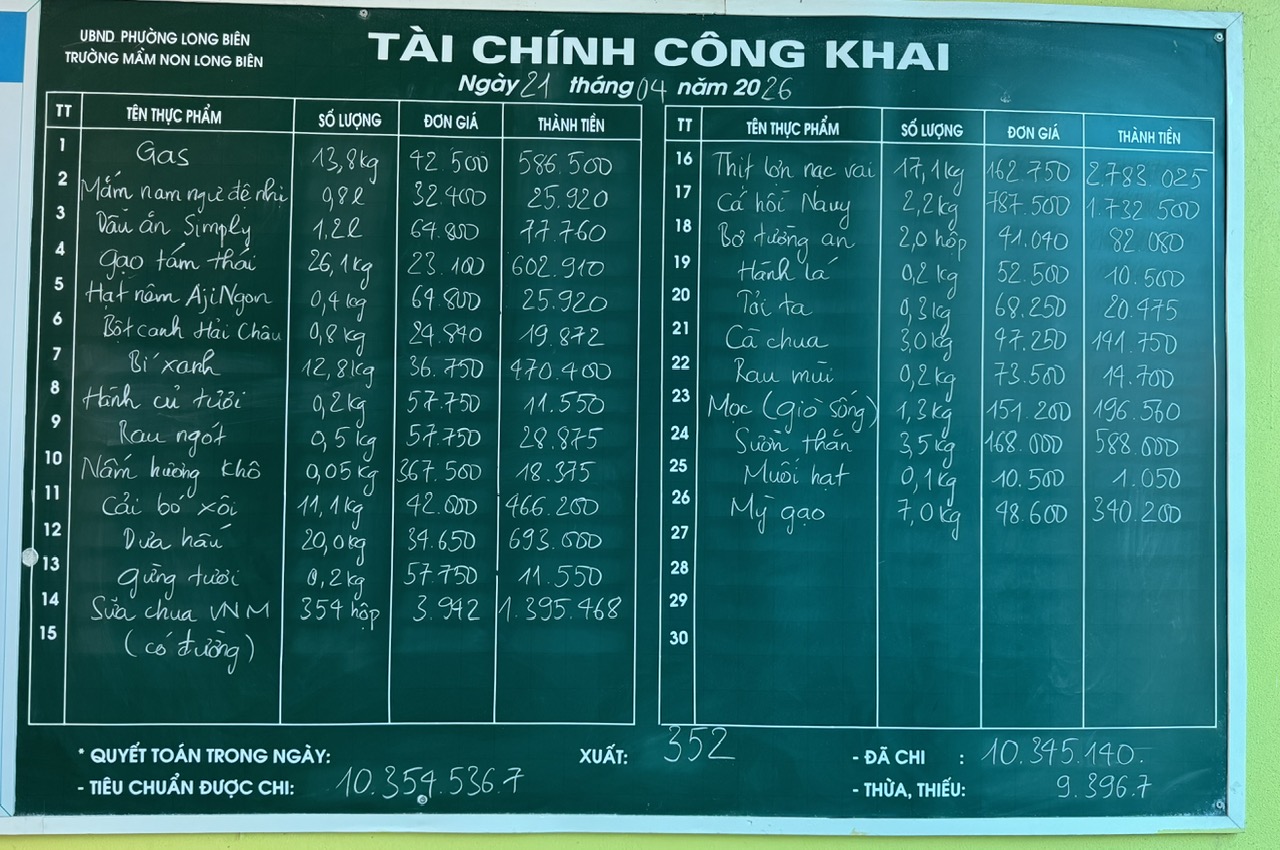 UBND PHƯỜNG LONG BIÊN
TRƯỜNG MẦM NON LONG BIÊN
TÀI CHÍNH CÔNG KHAI
Ngày 21 tháng 04 năm 2026
TT TÊN THỰC PHẨM SỐ LƯỢNG ĐƠN GIÁ THÀNH TIỀN
1 Gas 13,8kg 42.500 586.500
2 Mắm nam ngư đệ nhị 0,8l 32.400 25.920
3 Dầu ăn Simply 1,2l 64.800 77.760
4 gạo tám thái 26,1kg 23.100 602.910
5 Hạt nêm AjiNgon 0,4kg 64.800 25.920
6 Bột canh Hải Châu 0,8kg 24.840 19.872
7 Bí xanh 12,8kg 36.750 470.400
8 Hành củ tươi 0,2kg 57.750 11.550
9 Rau ngót 0,5kg 57.750 28.875
10 Nấm hương khô 0,05kg 367.500 18.375
11 Cải bó xôi 11,1kg 42.000 466.200
12 Dưa hấu 20,0kg 34.650 693.000
13 gừng tươi 0,2kg 57.750 11.550
14 Sữa chua VNM 354 hộp 3.942 1.395.468
15 (có đường)
TT TÊN THỰC PHẨM SỐ LƯỢNG ĐƠN GIÁ THÀNH TIỀN
16 Thịt lợn nạc vai 17,1kg 162.750 2.783.025
17 Cá hồi Nauy 2,2kg 787.500 1.732.500
18 Bơ tường an 2,0 hộp 41.040 82.080
19 Hành lá 0,2kg 52.500 10.500
20 Tỏi ta 0,3kg 68.250 20.475
21 Cà chua 3,0kg 47.250 141.750
22 Rau mùi 0,2kg 73.500 14.700
23 Mọc (giò sống) 1,3kg 151.200 196.560
24 Sườn thăn 3,5kg 168.000 588.000
25 Muối hạt 0,1kg 10.500 1.050
26 Mỳ gạo 7,0kg 48.600 340.200
27
28
29
30
* QUYẾT TOÁN TRONG NGÀY: XUẤT: 352 - ĐÃ CHI : 10.345.140
- TIÊU CHUẨN ĐƯỢC CHI: 10.354.536.7 - THỪA, THIẾU: 9.396.7